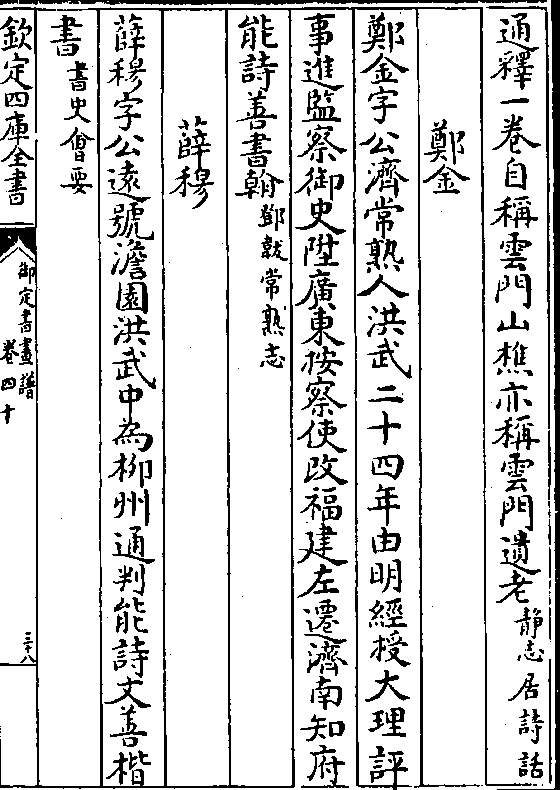 通釋一卷自稱雲門山樵亦稱雲門遺老靜志居詩話
鄭金
鄭金字公濟常熟人洪武二十四年由明經授大理評
事進監察御史陞廣東按察使改福建左遷濟南知府
能詩善書翰鄧韍常熟志
薛穆
薛穆字公遠號澹園洪武中為柳州通判能詩文善楷
書書史會要
欽定四庫全書
御定書畫譜
卷四十
三十八